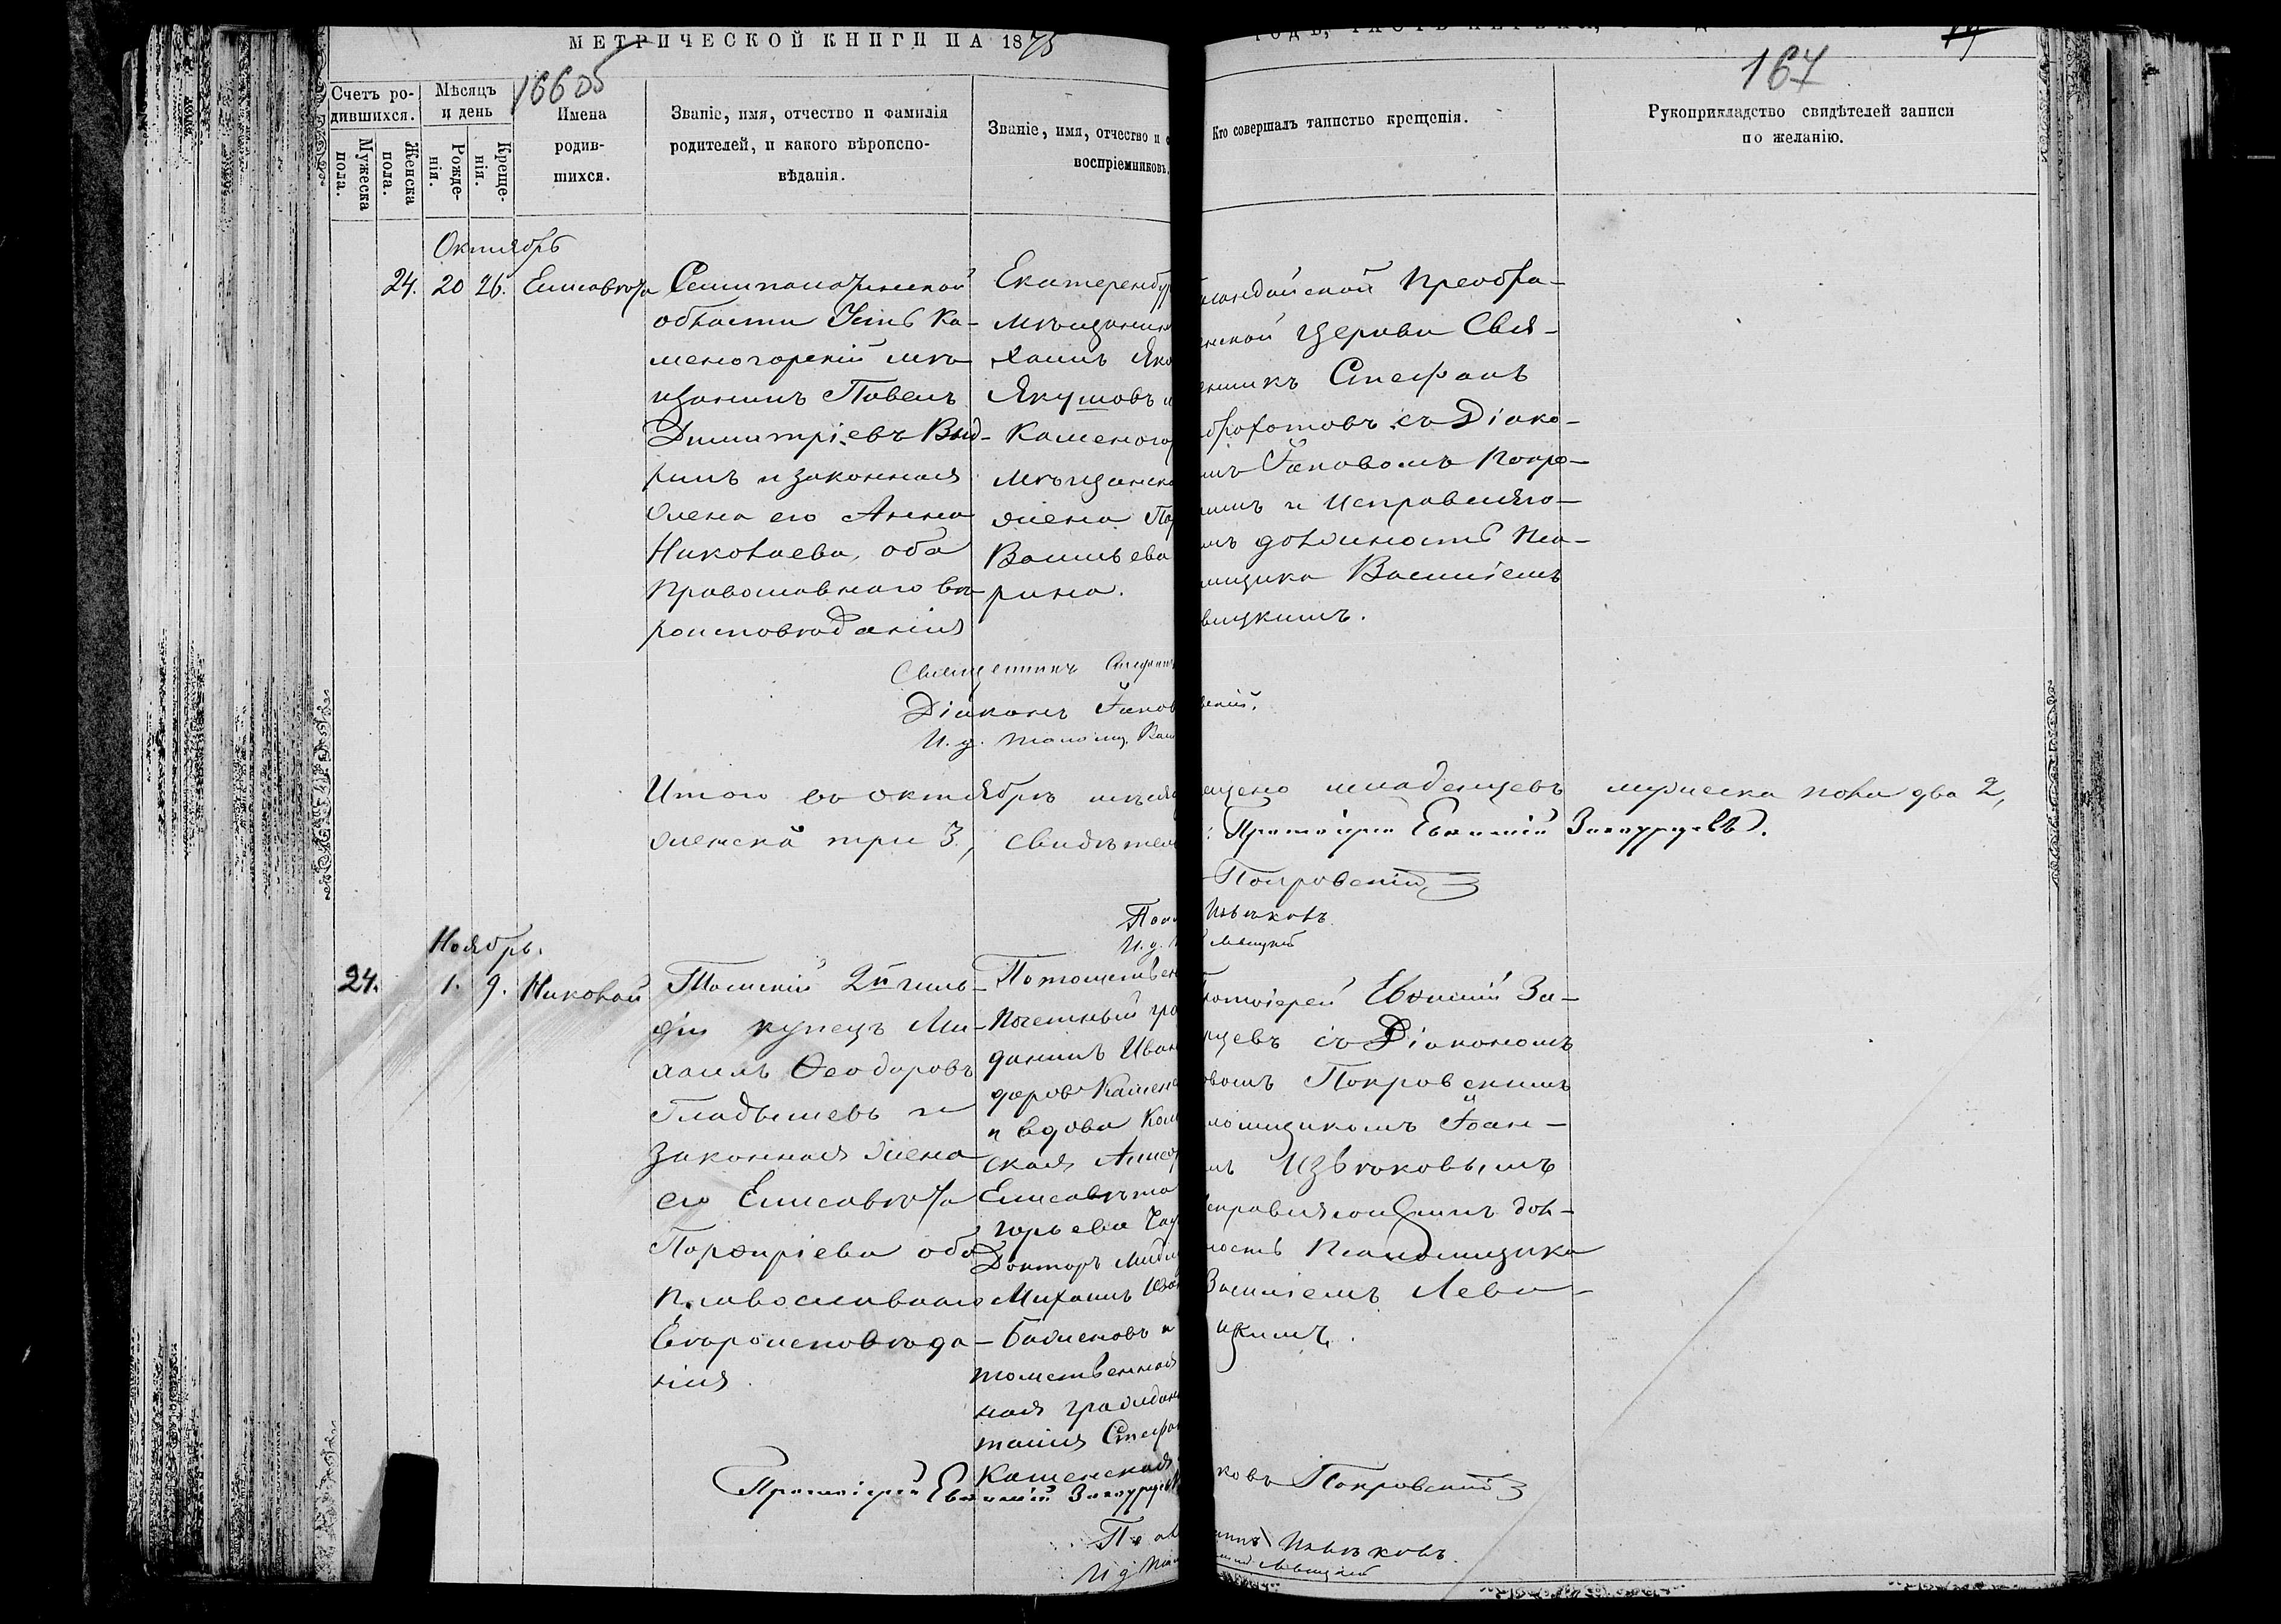 МЕТРИЧЕСКОЙ КНИГИ НА 1875
166об
167
Счетъ ро-
дившихся.
Мужеска пола.
Женска пола.
Мѣсяцъ
и день
Рожде-
нія.
Креще-
нія.
Имена
родив-
шихся.
Званіе, имя, отчество и фамилія
родителей, и какого вѣроиспо-
вѣданія.
Званіе, имя, отчество и
воспріемниковъ.
Кто совершалъ таинство крещенія.
Рукоприкладство свидѣтелей записи
по желанію.
Октябрь
24. 20 26. Елисавета
Семипалатинской
области Усть Ка-
меногорскій мѣ-
щанинъ Павелъ
Димитріевъ Выд-
ринъ и законная
жена его Анна
Николаева, оба
православнаго вѣ-
роисповѣданія
Екатеренбур
мѣщанин
хаилъ Яко
Якушовъ и
Каменого
мѣщанска
жена Па
Васильева
рина.
ландайской Преобра-
нской Церкви Свя-
енникъ Стефанъ
съ Діако-
мъ Іаковомъ Покро-
имъ и исправляю-
мъ должность Пса-
мщика Василіемъ
вицкимъ.
Священникъ Стефанъ
Діаконъ Іаков
вскій.
И. д. псаломщ. Вас
Итого въ октябрѣ мѣсяц
ещено младенцевъ мужеска пола два 2,
женска три 3, свидѣтел
: Протоіерей Евѳимій Закоурцевъ.
Покровскій
Пса
Извѣковъ
И. д.
Левицкій
Ноябрь.
24. 1. 9. Николай
Томскій 2й гиль-
діи купецъ Ми-
хаилъ Ѳеодоровъ
Гладышевъ и
законная жена
его Елисавета
Порфиріева оба
православнаго
вѣроисповѣда-
нія.
Потомствен
Почетный гра
данинъ Иван
доровъ Камен
и вдова Кол
ская Ассес
Елисавета
горьева
Докторъ Меди
Михаилъ Ив
Баженовъ и
томственная
ная граждан
талія Стефа
Каменская
ротоіерей Евѳимій За-
рцевъ съ Діакономъ
овомъ Покровскимъ
ломщикомъ Іоан-
мъ Извѣковымъ
исправляющимъ дол-
ность Псаломщика
Василіемъ Леви-
цкимъ.
Протоіерей Евѳимій Закоурцевъ
ковъ Покровскій
Извѣковъ.
И д
Левицкій